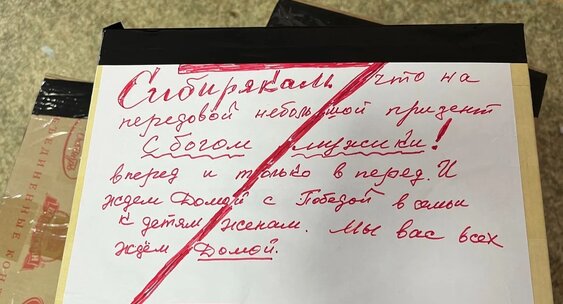 Сибирякам что на
передовой небольшой призент
С богом мужики!
вперед и только в перед. И
ждем Домой с Победой в семьи
к детям женам. Мы вас всех
ждём Домой.
ЕДИНЕННЫЕ КОН